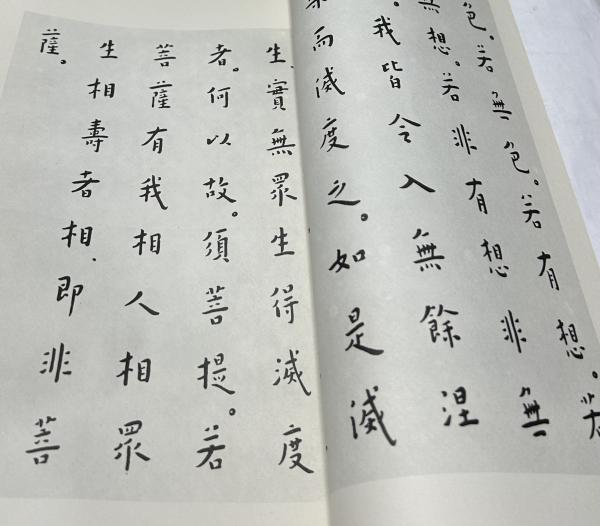 色。若無色。若有想。若
無想。若非有想非無
。我皆令入無餘涅
而滅度之。如是滅
生、實無眾生得滅度
者。何以故。須菩提。若
菩薩有我相人相眾
生相壽者相、即非菩
薩。